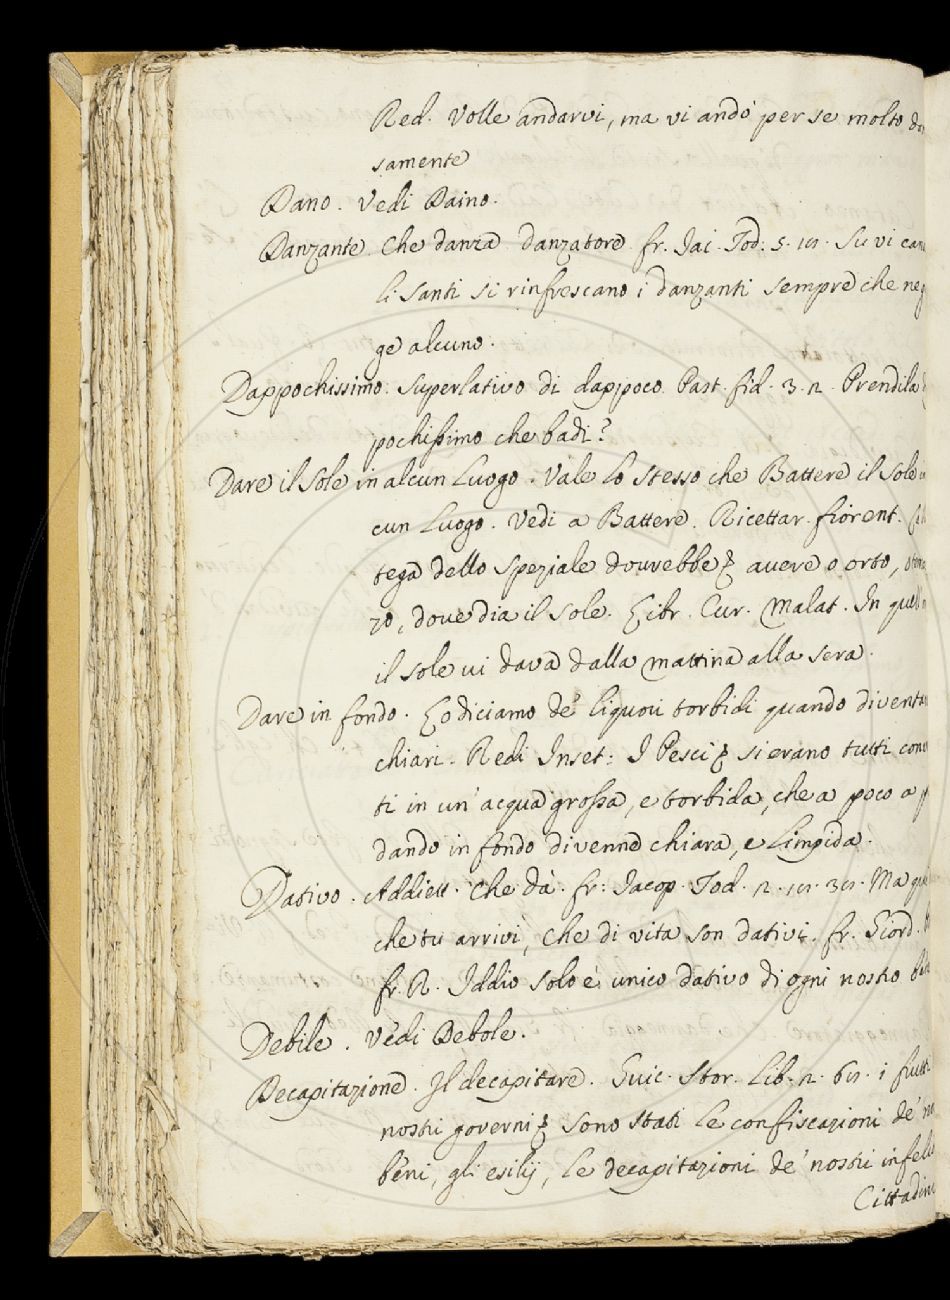 Red. Volle andarvi, ma vi andò per se molto
samente
Dano. Vedi Daino.
Danzante. Che danza danzatore. fr. Iac. Tod. 5. Su vi
li Santi si rinfrescano i danzanti sempre che
ge alcuno.
Dappochissimo. Superlativo di dappoco. Past. fid. 3. 2. Prendila
pochissimo che badi?
Dare il Sole in alcun Luogo. Vale lo stesso che Battere il Sole
cun Luogo. Vedi a Battere. Ricettar. fiorent.
tega dello Speziale dovrebbe avere o orto,
zo, dove dia il Sole. Libr. Cur. Malat. In quel
il sole vi dava dalla mattina alla sera.
Dare in fondo. Lo diciamo de' liquori torbidi quando
chiari. Redi Inset: I Pesci si erano tutti
ti in un' acqua grossa, e torbida, che a poco a
dando in fondo divenne chiara, e Limpida.
Dativo. Addiett. Che dà. fr: Iacop. Tod. 2. Ma
che tu arrivi, Che di vita son dativi. fr. Giord.
fr. R. Iddio solo è unico dativo di ogni nostro
Debile. Vedi Debole.
Decapitazione. Il decapitare. Guic. Stor. Lib. 2. i frutti
nostri governi sono stati Le confiscazioni de'
beni, gli esilij, Le decapitazioni de' nostri
Cittadini